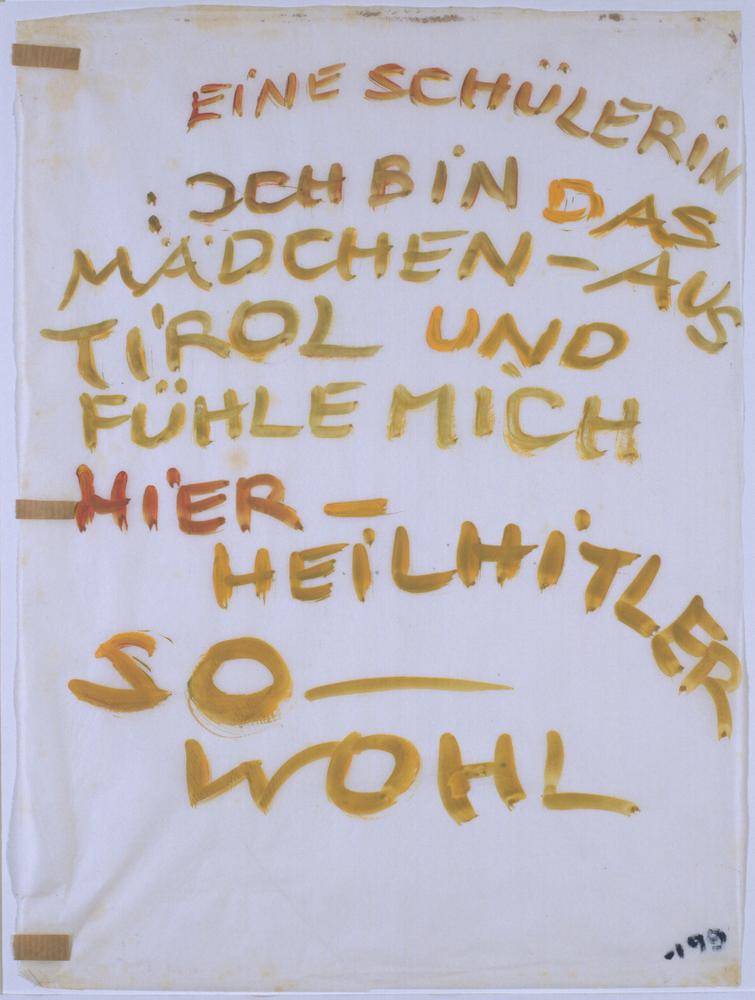 EINE SCHÜLERIN
: ICH BIN DAS
MÄDCHEN-AUS
TIROL UND
FÜHLE MICH
HIER-
HEIL HITLER
SO—
WOHL
-198